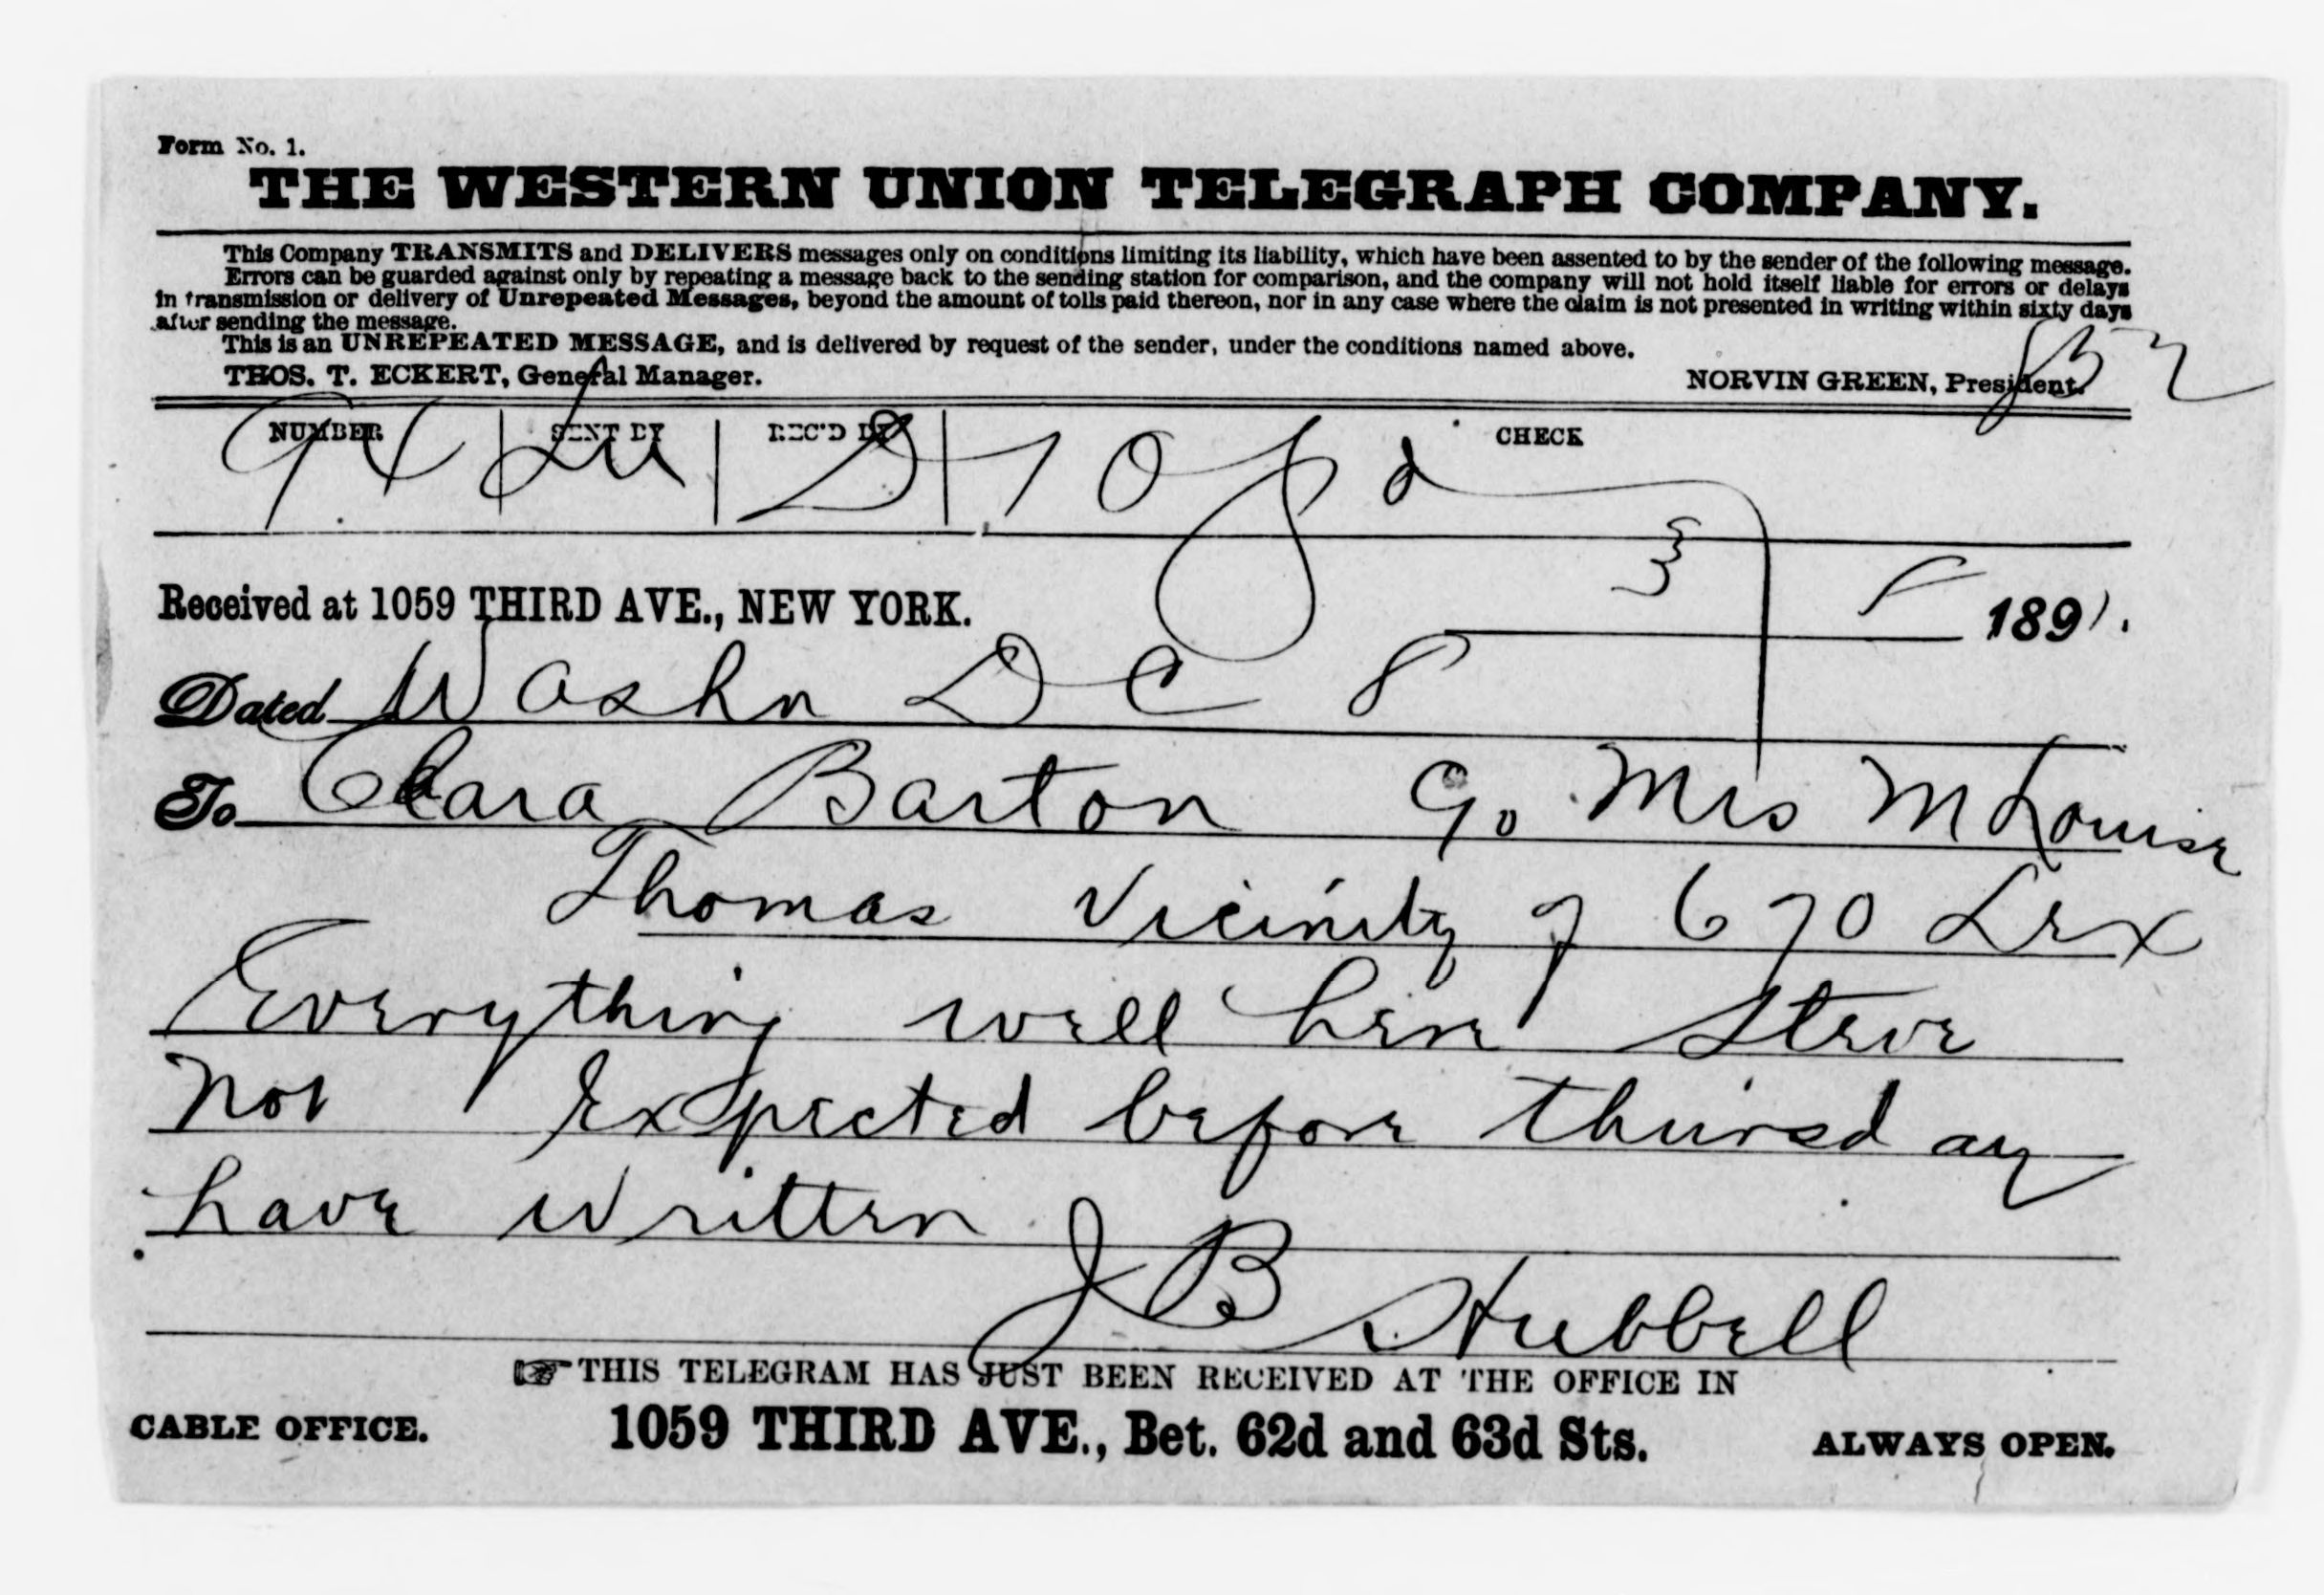 Form No. 1.
THE WESTERN UNION TELEGRAPH COMPANY.
This Company TRANSMITS and DELIVERS messages only on conditions limiting its liability, which have been assented to by the sender of the following message.
Errors can be guarded against only by repeating a message back to the sending station for comparison, and the company will not hold itself liable for errors or delays
in transmission or delivery of Unrepeated Messages, beyond the amount of tolls paid thereon, nor in any case where the claim is not presented in writing within sixty days
after sending the message.
This is an UNREPEATED MESSAGE, and is delivered by request of the sender, under the conditions named above.
THOS. T. ECKERT, General Manager. NORVIN GREEN, President.
NUMBER SENT BY REC'D BY CHECK
10 pd
Received at 1059 THIRD AVE., NEW YORK. 3 8 1891.
Dated Washn D C 8
To Clara Barton C/o Mrs M Louise
Thomas Vicinity of 670 Lex
Everything well here Steve
not Expected before thursday
have written
J B Hubbell
THIS TELEGRAM HAS JUST BEEN RECEIVED AT THE OFFICE IN
CABLE OFFICE. 1059 THIRD AVE., Bet. 62d and 63d Sts. ALWAYS OPEN.